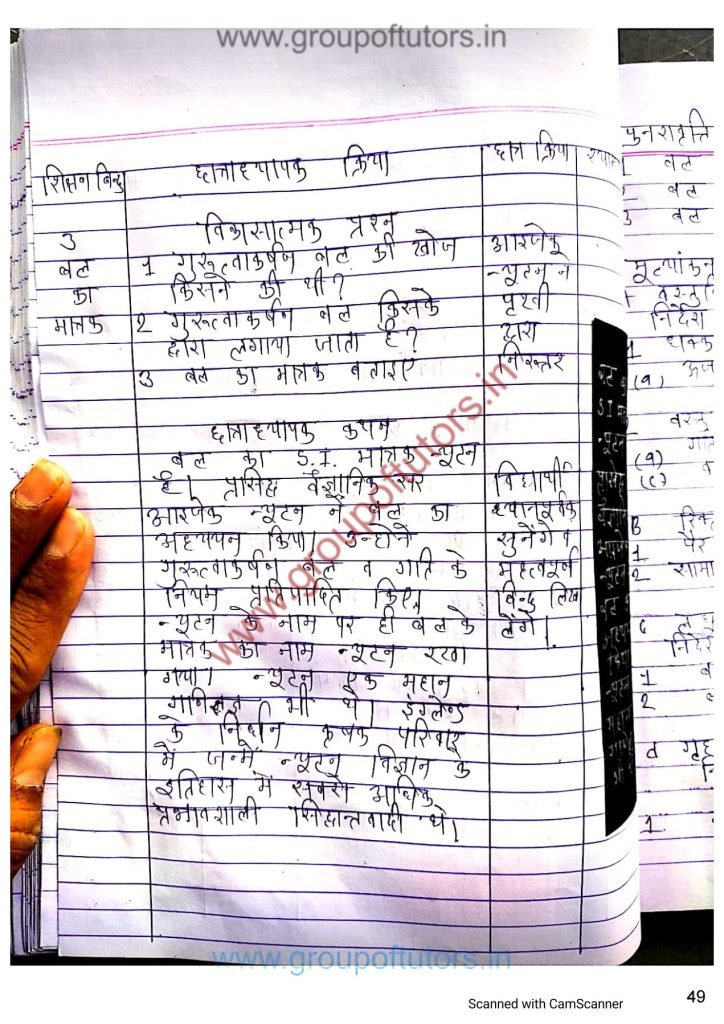 www.groupoftutors.in
शिक्षण बिन्दु
छात्राध्यापक क्रिया
छात्र क्रिया
3
बल
का
मात्रक
विकासात्मक प्रश्न
1 गुरूत्वाकर्षण बल की खोज
किसने की थी?
2 गुरूत्वाकर्षण बल किसके
द्वारा लगाया जाता है?
3 बल का मात्रक बताइए
छात्राध्यापक कथन
बल का S.I. मात्रक न्यूटन
है। प्रसिद्ध वैज्ञानिक सर
आइजेक न्यूटन ने बल का
अध्ययन किया। उन्होंने
गुरूत्वाकर्षण बल व गति के
नियम प्रतिपादित किए।
न्यूटन के नाम पर ही बल के
मात्रक का नाम न्यूटन रखा
गया। न्यूटन एक महान
गणितज्ञ भी थे। इंग्लैण्ड
के निर्धन कृषक परिवार
में जन्में न्यूटन विज्ञान के
इतिहास में सबसे अधिक
प्रभावशाली सिद्धान्तवादी थे।
आइजेक
न्यूटन ने
पृथ्वी
द्वारा
निरूत्तर
विद्यार्थी
ध्यानपूर्वक
सुनेंगे व
महत्वपूर्ण
बिन्दु लिख
लेंगे।
S.I
पुनरावृत्ति
1 बल
बल
3 बल
मूल्यांकन
निर्देश
1
(a)
वस्तु
(a)
(c)
B
1
2
C
1 ब
2
द गृह
1.
www.groupoftutors.in
www.groupoftutors.in
Scanned with CamScanner
49